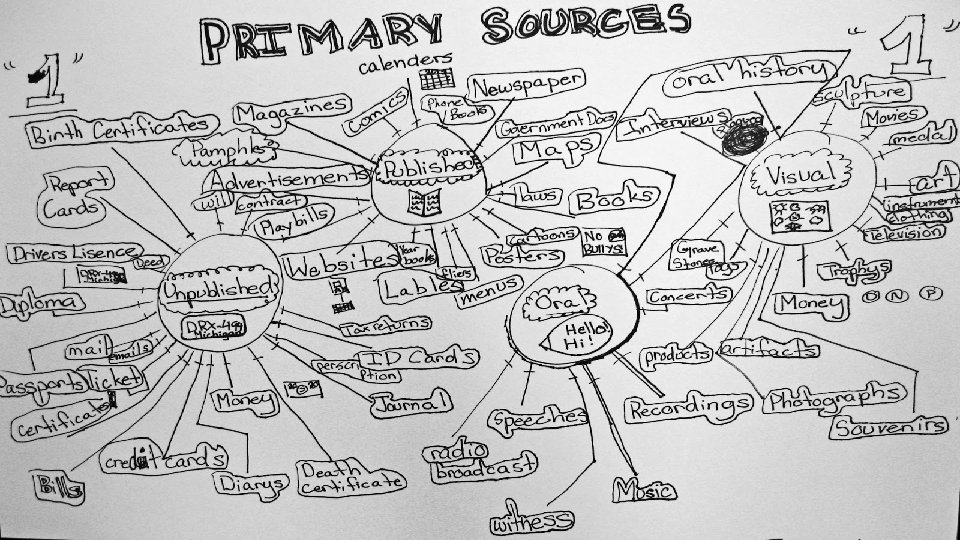 PRIMARY SOURCES
"1"
"1"
calenders
Newspaper
Oral history
Sculpture
Magazines
Comics
Phone Books
Government Docs
Interviews
Movies
Birth Certificates
medal
Pamphlet
Published
Maps
Visual
Report
Cards
Advertisements
laws
Books
art
will
contract
instrument
clothing
Playbills
Television
cartoons
No
Bullys
Drivers Lisence
Deed
Websites
Year
books
Posters
Grave
Stones
Togs
Trophys
DRX-499
Michigan
Unpublished
Lables
fliers
menus
Oral
Concerts
Money
Diploma
DRX-499
Michigan
Hello!
Hi!
Tax returns
mail
emails
perscri
ption
ID Cards
products
artifacts
Passports
Ticket
Money
Journal
Speeches
Recordings
Photographs
certificates
Souvenirs
credit cards
radio
broadcast
Bills
Diarys
Death
Certificate
Music
witness